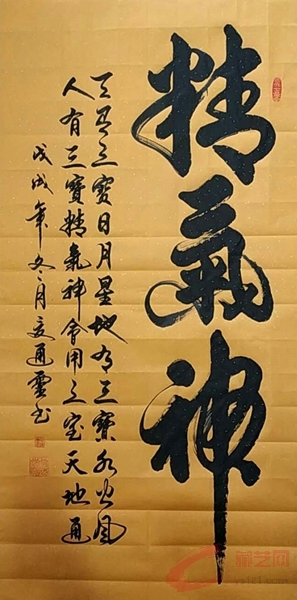 精氣神
天有三寶日月星地有三寶水火風
人有三寶精氣神會用三寶天地通
戊戌年冬月
通雲書